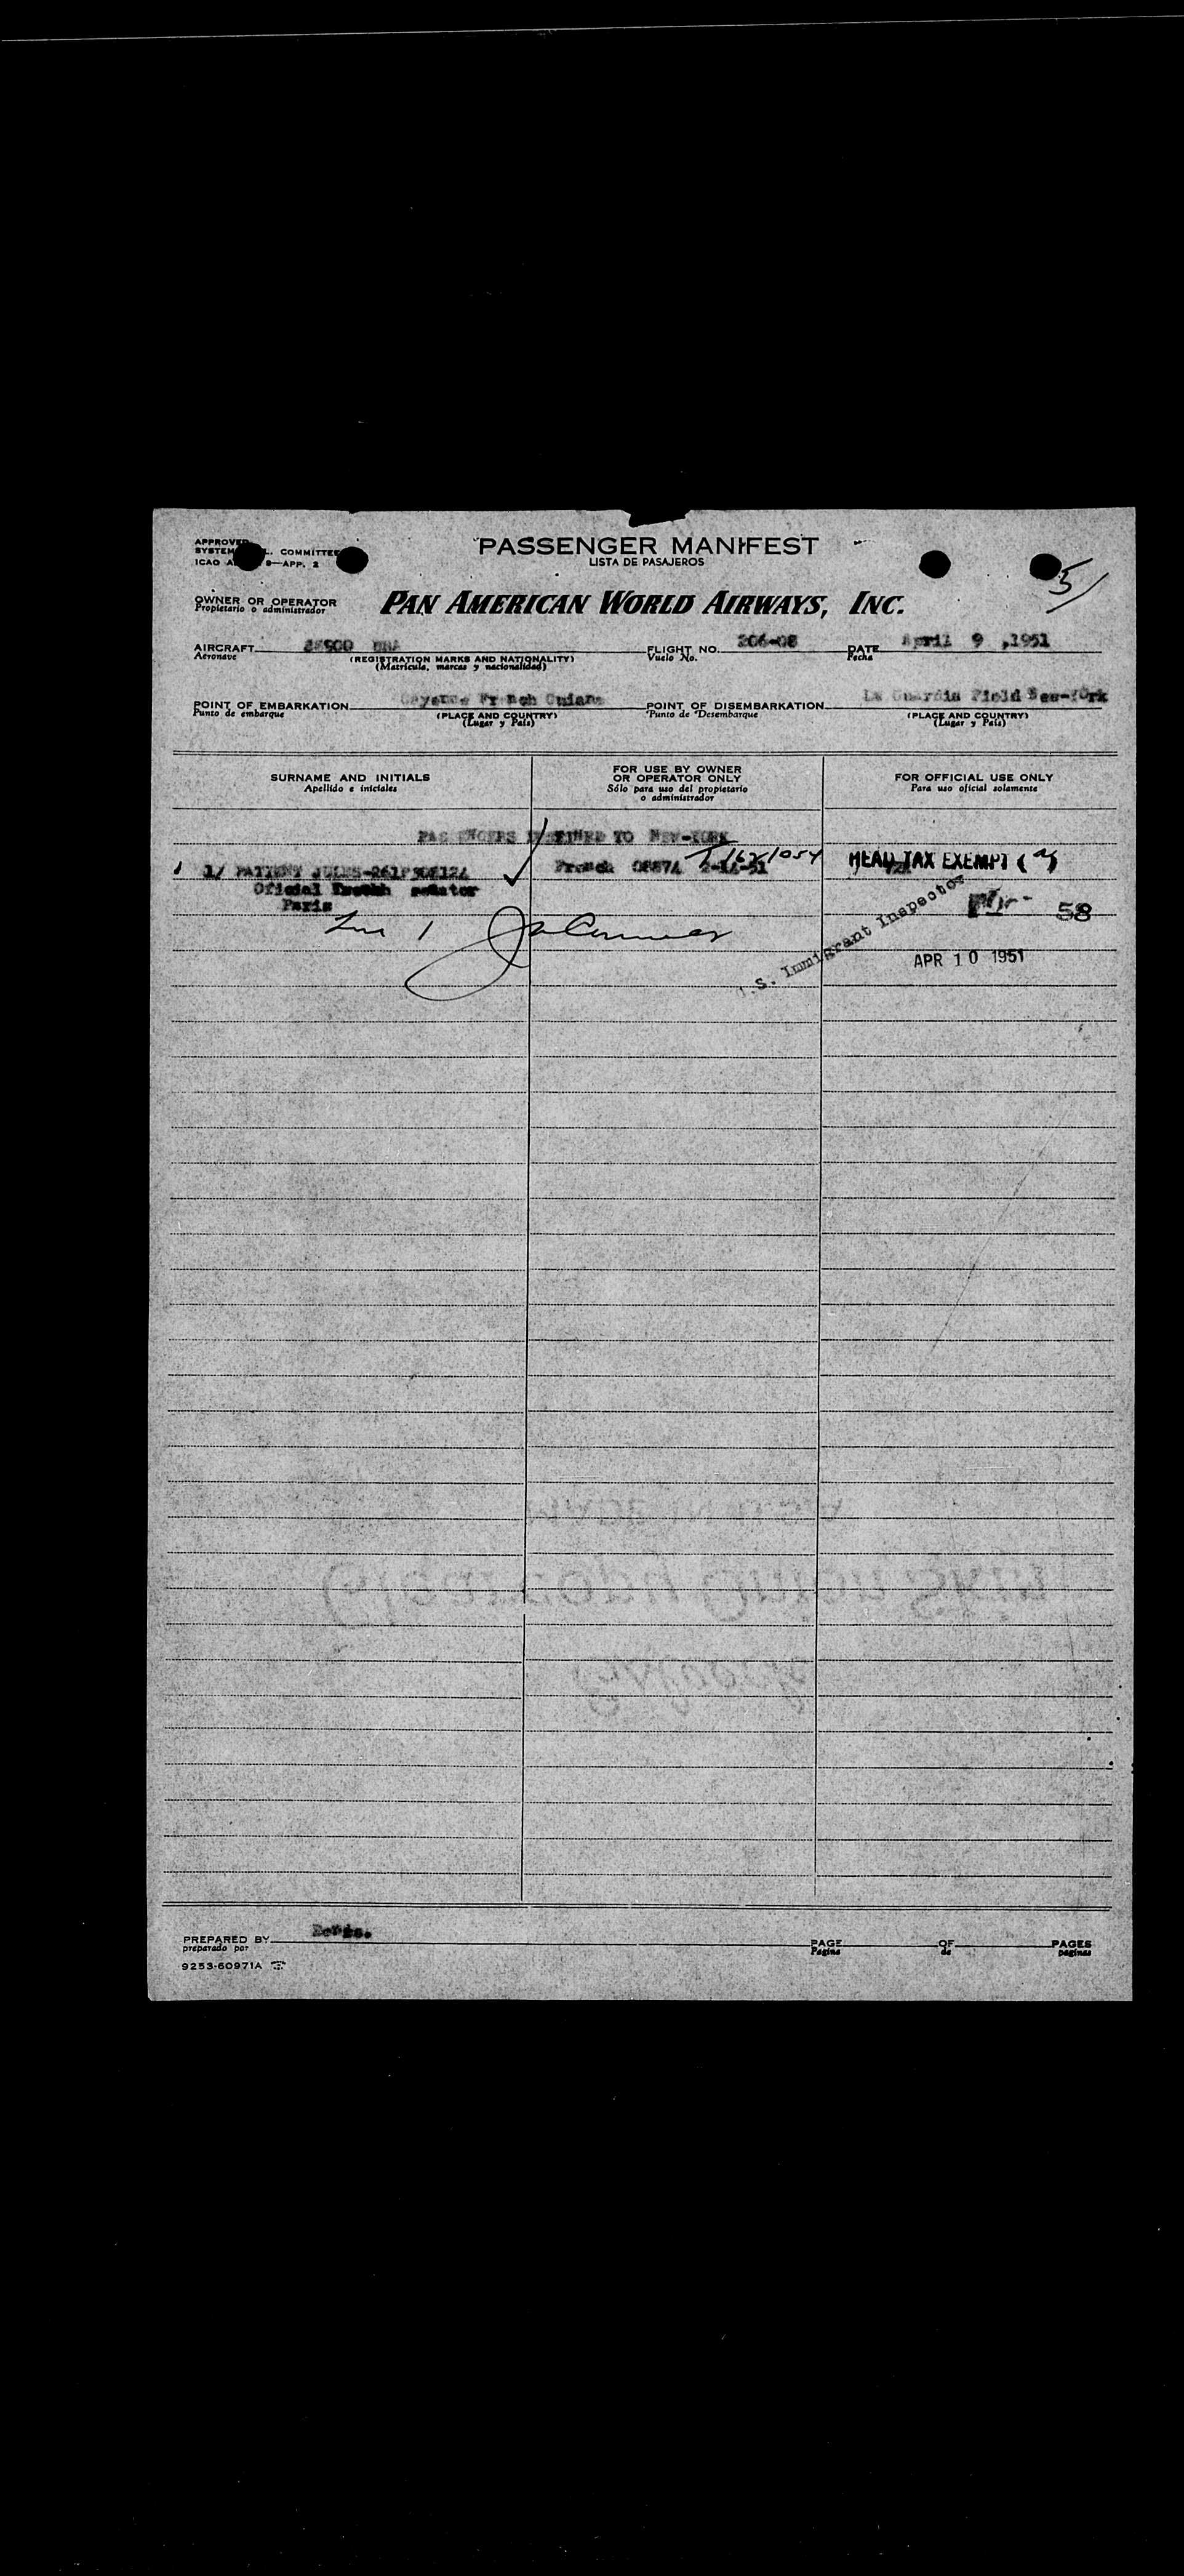 PASSENGER MANIFEST
LISTA DE PASAJEROS
APPROVED
SYSTEM COMMITTEE
ICAO 9—APP. 2
5/
OWNER OR OPERATOR
Propietario o administrador
PAN AMERICAN WORLD AIRWAYS, INC.
AIRCRAFT
Aeronave
(REGISTRATION MARKS AND NATIONALITY)
(Matrícula, marcas y nacionalidad)
FLIGHT NO. 206-08
Vuelo No.
DATE April 9 ,1951
Fecha
POINT OF EMBARKATION Cayenne French Guiana
Punto de embarque
(PLACE AND COUNTRY)
(Lugar y País)
POINT OF DISEMBARKATION La Guardia Field New-York
Punto de Desembarque
(PLACE AND COUNTRY)
(Lugar y País)
SURNAME AND INITIALS
Apellido e iniciales
FOR USE BY OWNER
OR OPERATOR ONLY
Sólo para uso del propietario
o administrador
FOR OFFICIAL USE ONLY
Para uso oficial solamente
PASSENGERS DESTINED TO NEW-YORK
1/ PATIENT JULES
French
HEAD TAX EXEMPT
Oficial senator
Paris
58
U.S. Immigrant Inspector
APR 10 1951
PREPARED BY
preparado por
PAGE OF PAGES
Página de páginas
9253-60971A